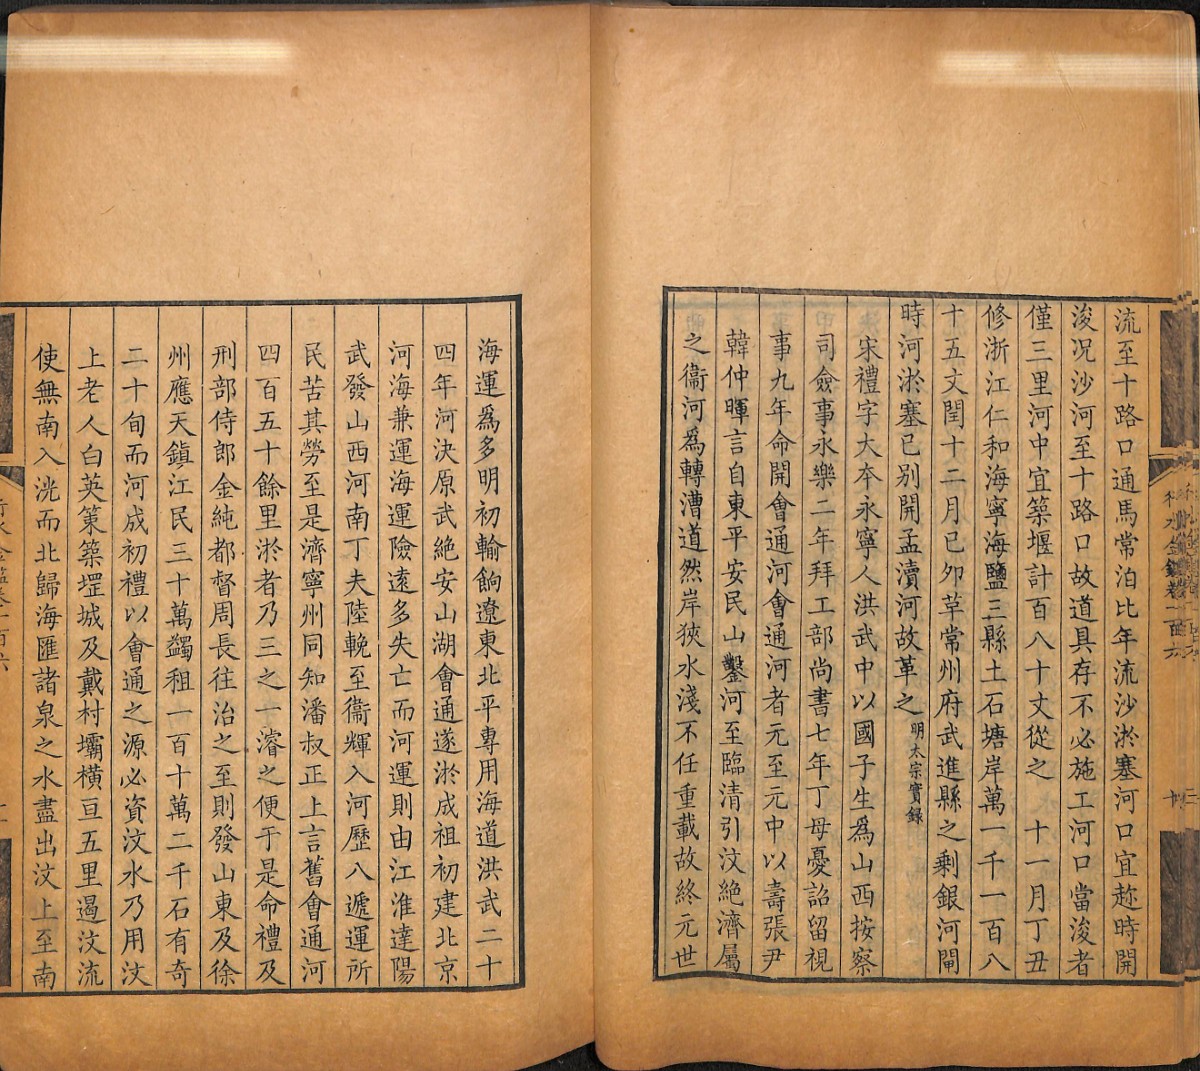 流至十路口通馬常泊比年流沙淤塞河口宜趂時開
浚况沙河至十路口故道具存不必施工河口當浚者
僅三里河中宜築堰計百八十丈從之　十一月丁丑
修浙江仁和海寧海鹽三縣土石塘岸萬一千一百八
十五丈閏十二月已夘革常州府武進縣之剩銀河閘
時河淤塞已别開孟瀆河故革之明太宗實録
宋禮字大本永寧人洪武中以國子生爲山西按察
司僉事永樂二年拜工部尚書七年丁母憂詔留視
事九年命開會通河會通河者元至元中以壽張尹
韓仲暉言自東平安民山鑿河至臨清引汶絶濟屬
之衞河爲轉漕道然岸狹水淺不任重載故終元世
海運爲多明初輸餉遼東北平專用海道洪武二十
四年河決原武絶安山湖會通遂淤成祖初建北京
河海兼運海運險遠多失亡而河運則由江淮達陽
武發山西河南丁夫陸輓至衞輝入河歷八遞運所
民苦其勞至是濟寧州同知潘叔正上言舊會通河
四百五十餘里淤者乃三之一濬之便于是命禮及
刑部侍郎金純都督周長往治之至則發山東及徐
州應天鎮江民三十萬蠲租一百十萬二千石有奇
二十旬而河成初禮以會通之源必資汶水乃用汶
上老人白英策築堽城及戴村壩横亘五里遏汶流
使無南入洸而北歸海匯諸泉之水盡出汶上至南
行水金鑑卷一百六